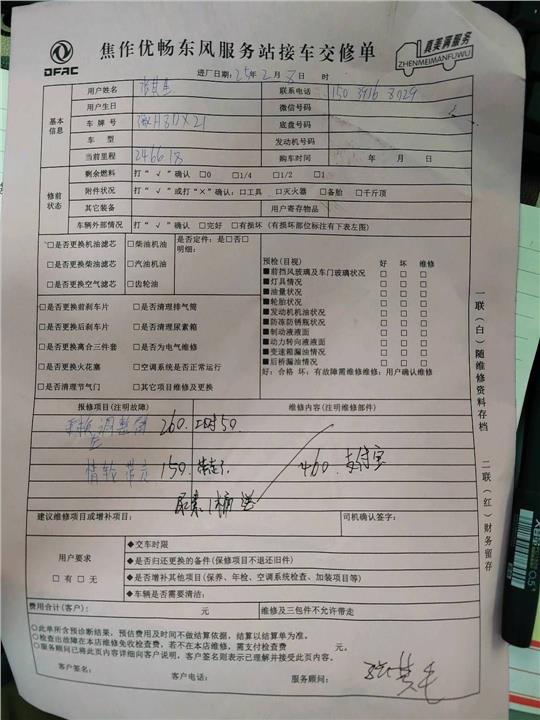 DFAC
焦作优畅东风服务站接车交修单
真美满服务
ZHENMEIMANFUWU
进厂日期：25年2月8日 时
基本信息
用户姓名
联系电话 150 3916 8029
用户生日
微信号码
车 牌 号 豫H3DX21
底盘号码
车 型
发动机号码
当前里程 246618
购车时间 年 月 日
修前状态
剩余燃料 打“√”确认 □0 □1/4 □1/2 □1
附件状况 打“√”或打“×”确认：□工具 □灭火器 □备胎 □千斤顶
其它装备
用户寄存物品
车辆外部情况 打“√”确认 □完好 □有损坏（有损坏部位标注有下表左图）
□是否更换机油滤芯 □柴油机油 是否定件：是□否□
明细：
□是否更换柴油滤芯 □汽油机油
□是否更换空气滤芯 □齿轮油
预检(目视) 好 坏 维修
■前挡风玻璃及车门玻璃状况 □ □ □
■灯具情况 □ □ □
■油量状况 □ □ □
■轮胎状况 □ □ □
■发动机机油状况 □ □ □
■防冻防锈瓶状况 □ □ □
■制动液液面 □ □ □
■动力转向液液面 □ □ □
■变速箱漏油情况 □ □ □
■后桥漏油情况 □ □ □
好：合格 坏：有故障需维修维修：用户确认维修
□是否更换前刹车片 □是否清理排气筒
□是否更换后刹车片 □是否清理尿素箱
□是否更换离合三件套 □是否为电气维修
□是否更换火花塞 □空调系统是否正常运行
□是否清理节气门 □其它项目维修及更换
报修项目(注明故障)
维修内容(注明维修部件)
更换调整臂 260. 工时50.
左
惰轮带走 150. 带走了.
460. 支付宝
尿素1桶 送
建议维修项目或增补项目：
司机确认签字：
用户要求
□ 有 □ 无
◆交车时限
◆是否归还更换的备件(保修项目不退还旧件)
◆是否增补其他项目(保养、年检、空调系统检查、加装项目等)
◆车辆是否需要清洁：
费用合计(客户)： 元
维修及三包件不允许带走
○此单所含预诊断结果，预估费用及时间不做结算依据，结算以结算单为准。
○检查出故障在本店维修免收检查费，若不在本店维修，需支付检查费 元。
○服务顾问已将此页内容详细向客户说明，客户签名则表示已理解并接受此页内容。
客户签名：
客户电话：
服务顾问：
一联（白）随维修资料存档
二联（红）财务留存